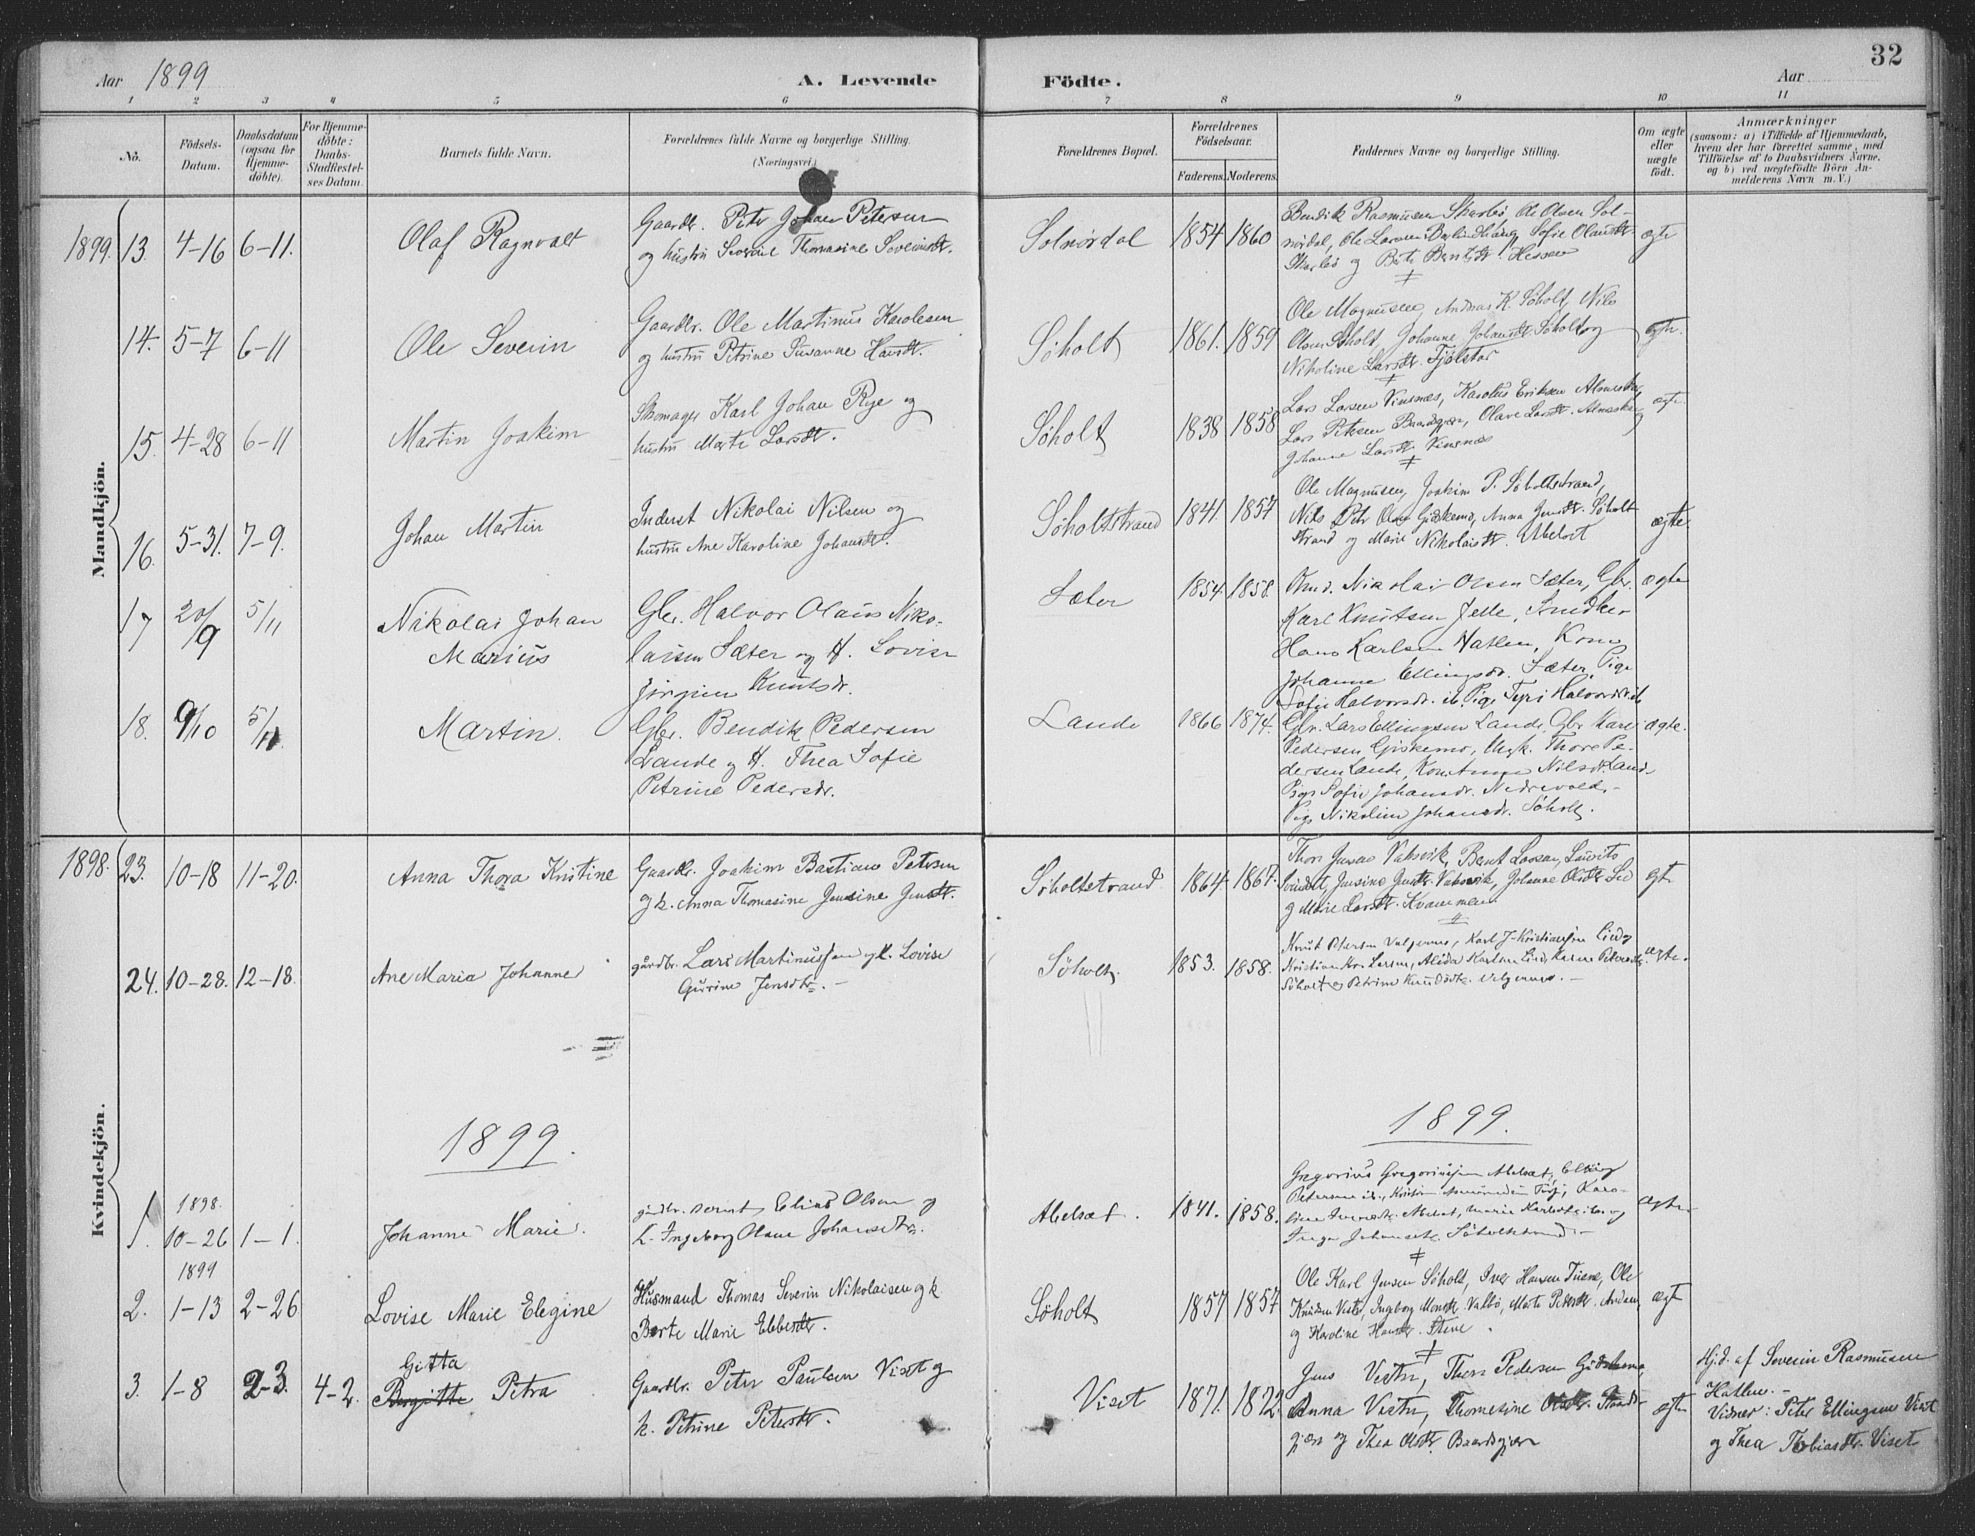 32
Aar 1899 A. Levende Födte. Aar
1 2 3 4 5 6 7 8 9 10 11
No. Födsels-Datum. Daabsdatum (ogsaa for Hjemme-döbte). For Hjemme-döbte: Daabs-Stadfæstel-ses Datum. Barnets fulde Navn. Forældrenes fulde Navne og borgerlige Stilling. (Næringsvei.) Forældrenes Bopæl. Forældrenes Födselsaar. Faderens. Moderens. Faddernes Navne og borgerlige Stilling. Om ægte eller uægte födt. Anmærkninger
(saasom: a) i Tilfælde af Hjemmedaab,
hvem der har forrettet samme, med
Tilföielse af to Daabsvidners Navne,
og b) ved uægtefödte Börn An-
melderens Navn m. V.)
Mandkjön.
1899. 13. 4-16 6-11. Olaf Ragnvalt
Gaardbr. Peter Johan Petersen
og hustru Severine Thomasine Severinsdtr.
Solnørdal 1854 1860
Bendik Rasmusen Skarbø, Ole Olsen Sol-
nørdal, Ole Larsen Sofie Olausdtr.
Skarbø og Berte Berntsdtr. Hessen
ægte
14. 5-7 6-11 Ole Severin
Gaardbr. Ole Martinus Karolesen
og hustru Petrine Susanne Hansdtr.
Søholt 1861. 1859
Ole Magnusen, Andreas K. Søholt, Nils
Olsen Søholt, Johanne Johansdtr. Søholt og
Nikoline Larsdtr. Fjelstar
ægte.
15. 4-28 6-11 Martin Joakim
Skomager Karl Johan Rye og
hustru Marte Larsdtr.
Søholt 1838 1858
Lars Larsen Vinsnæs, Karolus Eriksen
Lars Petersen Baardsgjær, Olave Larsdtr.
Johanne Larsdtr. Vinsnæs
ægte
16. 5-31. 7-9. Johan Martin
Inderst Nikolai Nilsen og
hustru Ane Karoline Johansdtr.
Søholtstrand 1841. 1857
Ole Magnusen, Joakim P. Søholtstrand,
Nils Petr Olsen Giskemo, Anna Jensdtr. Søholt
strand og Marie Nikolaisdtr. Abelset
ægte
17 20/9 5/11 Nikolai Johan
Marius
Gbr. Halvor Olaus Niko-
laisen Sæter og H. Lovise
Jörgine Knutsdr.
Sæter 1854. 1858.
Nikolai Olsen Sæter, Gbr.
Karl Knutsen Jelle, Snedker
Hans Karlsen Hatlen, Kone
Johanne Ellingsdr. Sæter, Pige
Sofie Halvorsdr. ib. Pige Tyri Halvorsdr. ib
ægte
18. 9/10 5/11. Martin.
Gbr. Bendik Pedersen
Lande og H. Thea Sofie
Petrine Pedersdr.
Lande 1866 1874.
Gbr. Lars Ellingsen Lande, Gbr. Karl
Pedersen Giskemo, Ungk. Thore Pe-
dersen Lande, Nilsdr. Lande
Pige Sofie Johansdr. Nedrevold,
Pige Nikoline Johansdr. Søholt.
ægte.
Kvindekjön.
1898. 23. 10-18 11-20. Anna Thora Kristine
Gaardbr. Joakim Bastian Petersen
og h. Anna Thomasine Jensine Jensdtr.
Søholtstrand 1864. 1867.
Thore Jensen Vaksvik, Bernt Larsen, Laurits
Jensine Jensdtr. Vaksvik, Johanne Olsdtr.
og Marie Larsdtr. Kvammen
ægte
24. 10-28. 12-18. Ane Maria Johanne
gårdbr. Lars Martinussen og h. Lovise
Gurine Jensdtr.
Søholt. 1853. 1858.
Knut Petersen Valgermo, Karl J. Kristiansen Lied og
Kristian Kr. Larsen, Alida Karlsen Lied,
Søholt og Petrine Knudsdtr. Velgermo.
ægte.
1899. 1899.
1. 1898. 10-26 1-1. Johanne Marie.
gårdbr. Bernt Elias Olsen og
h. Ingeborg Olave Johansdtr.
Abelsæt. 1841. 1858.
Gregorius Gregoriussen Abelsæt, Elling
Petersen ib.,
Inga Johansdtr. Søholtstrand.
ægte.
2. 1899 1-13 2-26 Lovise Marie Elegine
Husmand Thomas Severin Nikolaisen og h.
Berte Marie Ebbesdtr.
Søholt 1857 1857
Ole Karl Jensen Søholt, Iver Hansen Tusne, Ole
Knudsen Vestre, Ingeborg Monsdtr. Valbø, Marte Petersdtr.
og Karoline Hansdtr. Stene.
ægte
3. 1-8 2-3. 4-2. Gitta
Birgitte Petra
Gaardbr. Peter Paulsen Viset og
h. Petrine Petersdtr.
Viset 1871. 1872
Jens Vestre, Thore Pedersen Giskemo,
Anna Vestre, Thomasine Olsdtr.
og Thea Olsdtr. Baardsgjær
ægte
Hjd. af Severin Rasmusen
Hatlen.
Vidner: Peter Ellingsen Viset
og Thea Tobiasdtr. Viset